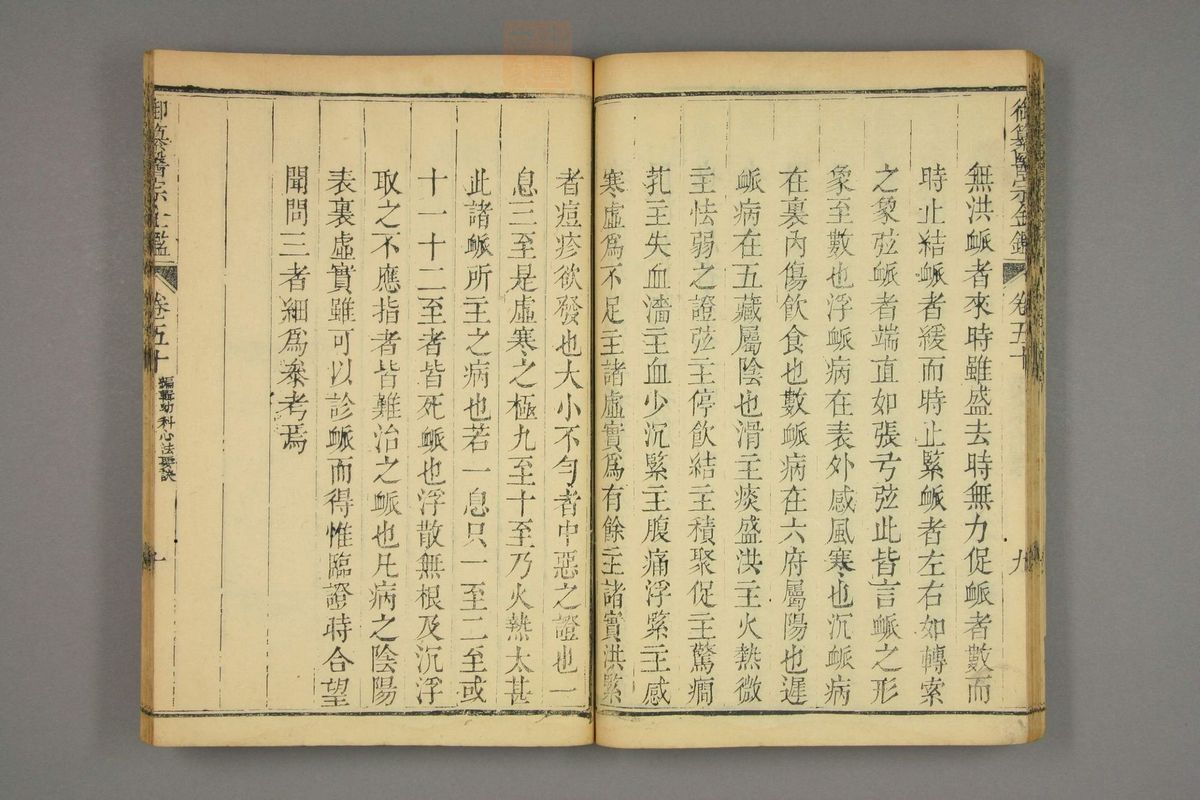 御纂醫宗金鑑 卷五十 九
無洪䘑者來時雖盛去時無力促䘑者數而
時止結䘑者緩而時止緊䘑者左右如轉索
之象弦䘑者端直如張弓弦此皆言䘑之形
象至數也浮䘑病在表外感風寒也沉䘑病
在裏內傷飲食也數䘑病在六府屬陽也遲
䘑病在五藏屬陰也滑主痰盛洪主火熱微
主怯弱之證弦主停飲結主積聚促主驚癇
芤主失血濇主血少沉緊主腹痛浮緊主感
寒虛爲不足主諸虛實爲有餘主諸實洪緊
者痘疹欲發也大小不勻者中惡之證也一
息三至是虛寒之極九至十至乃火熱太甚
此諸䘑所主之病也若一息只一至二至或
十一十二至者皆死䘑也浮散無根及沉浮
取之不應指者皆難治之䘑也凡病之陰陽
表裏虛實雖可以診䘑而得惟臨證時合望
聞問三者細爲叅考焉
御纂醫宗金鑑 卷五十 編輯幼科心法要訣 十